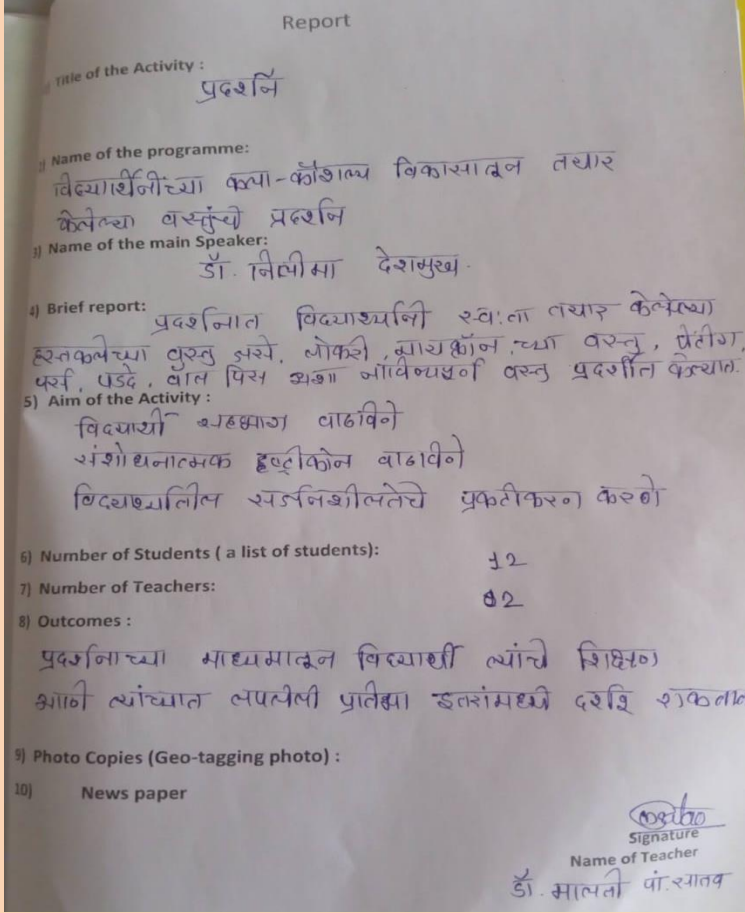 Report
1) Title of the Activity :
प्रदर्शनि
2) Name of the programme:
विद्यार्थिनींच्या कला-कौशल्य विकासातून तयार
केलेल्या वस्तुंचे प्रदर्शनि
3) Name of the main Speaker:
डॉ. निलीमा देशमुख.
4) Brief report:
प्रदर्शनात विद्यार्थ्यांनी स्व:ता तयार केलेल्या
हस्तकलेच्या वस्तु जसे, लोकरी, मायक्रॉन च्या वस्तु, पेंटीग,
पर्स, पडदे, वाल पिस अशा नाविन्यपूर्ण वस्तु प्रदर्शीत केल्यात.
5) Aim of the Activity :
विद्यार्थी सहभाग वाढविने
संशोधनात्मक दृष्टीकोन वाढविने
विद्यार्थ्यातील सर्जनशीलतेचे प्रकटीकरण करणे
6) Number of Students ( a list of students): 12
7) Number of Teachers: 02
8) Outcomes :
प्रदर्शनाच्या माध्यमातून विद्यार्थी त्यांचे शिक्षण
आणि त्यांच्यात लपलेली प्रतिभा इतरांमध्ये दर्शवि शकतात
9) Photo Copies (Geo-tagging photo) :
10) News paper
Signature
Name of Teacher
डॉ. मालती पां. सातव